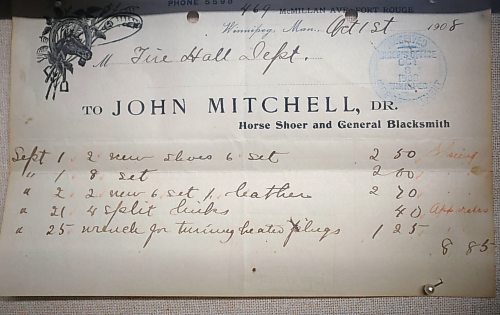 PHONE 5598
469 McMILLAN AVE. FORT ROUGE
Winnipeg, Man., Oct 1st 1908
M Fire Hall Dept.
TO JOHN MITCHELL, DR.
Horse Shoer and General Blacksmith
Sept 1 2 new shoes 6 set 2 50
" 1 8 set 2 00
" 2 2 new 6 set 1 leather 2 70
" 21 4 split links 40
" 25 wrench for turning heater plugs 1 25
8 85